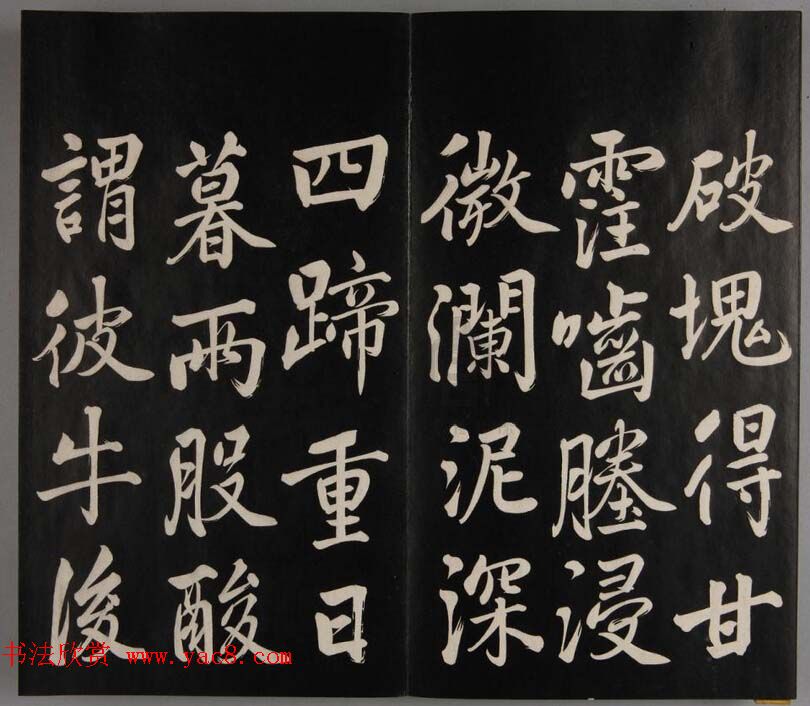 破塊得甘
霔噛塍浸
微瀾泥深
四蹄重日
暮兩股酸
謂彼牛後
书法欣赏 www.yac8.com